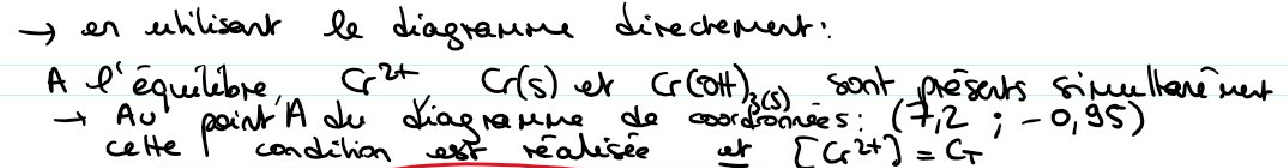 → en utilisant le diagramme directement:
A l'équilibre, Cr²⁺, Cr(s) et Cr(OH)₃(s) sont présents simultanément
→ Au point A du diagramme de coordonnées: (7,2 ; -0,95)
cette condition est réalisée et [Cr²⁺] = C_T